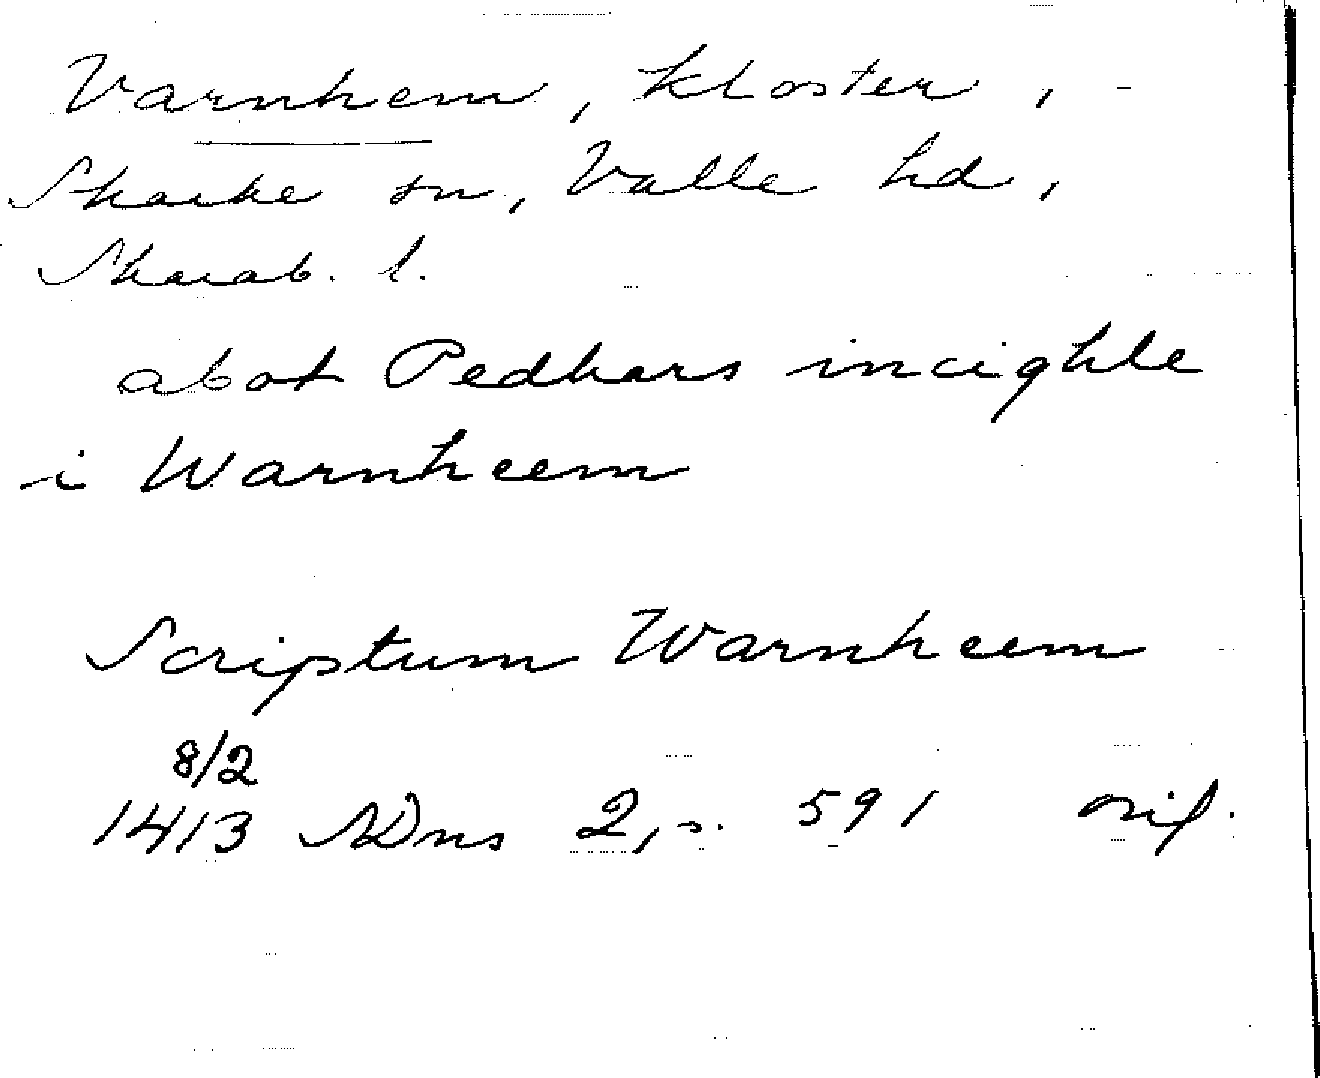 Varnhem, kloster, -
Skarke sn, Valle hd,
Skarab. l.
abot Pedhars incighle
i Warnheem
Scriptum Warnheem
8/2
1413 SDns 2, s. 591 orig.